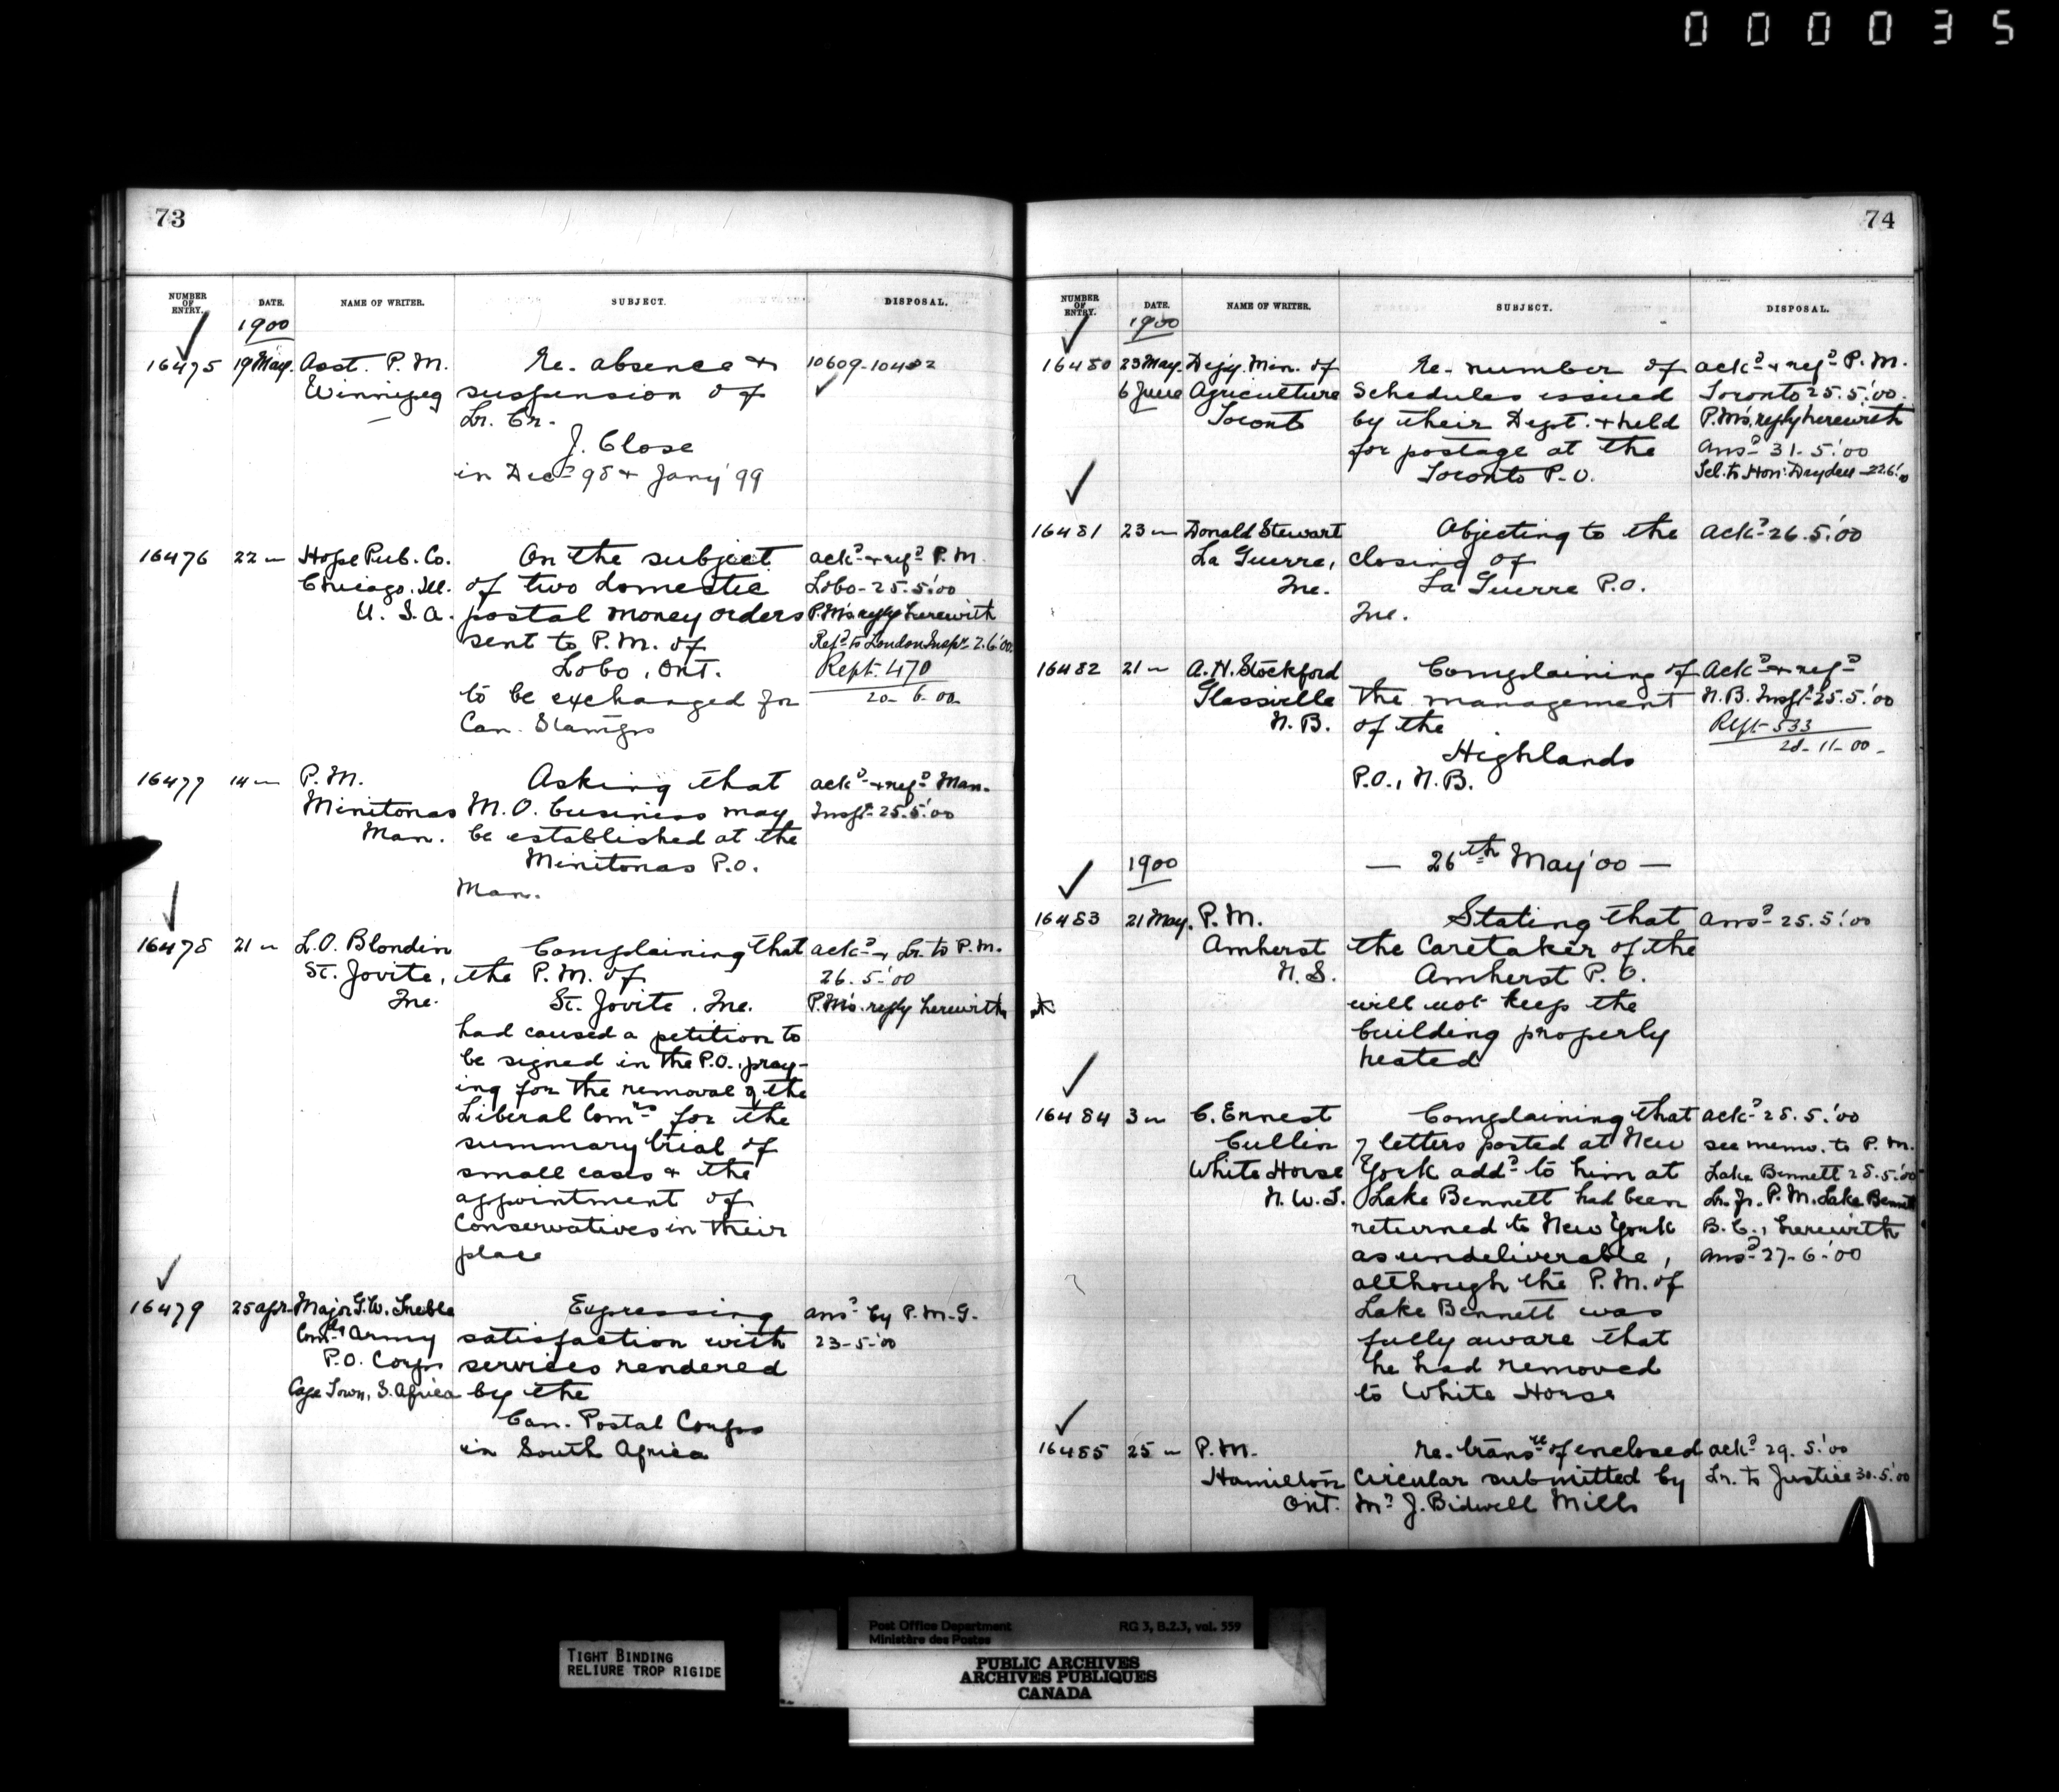 000035
73
NUMBER OF ENTRY. DATE. NAME OF WRITER. SUBJECT. DISPOSAL.
1900
16475 19 May. Asst. P. M. Re. absence & 10609-10482
Winnipeg suspension of
Lr. Cr.
J. Close
in Decr 98 & Jany '99
16476 22 " Hope Pub. Co. On the subject ackd & refd P. M.
Chicago. Ill. of two domestic Lobo - 25.5.'00
U. S. A. postal money orders P.M's reply herewith
sent to P. M. of Refd to London Inspr 2.6.'00.
Lobo, Ont. Rept. 470
to be exchanged for 20-6-00.
Can. Stamps
16477 14 " P. M. Asking that ackd & refd Man.
Minitonas M. O. business may Inspr 25.5.'00
Man. be established at the
Minitonas P.O.
Man.
16478 21 " L. O. Blondin Complaining that ackd & Lr. to P. M.
St. Jovite, the P. M. of 26.5.'00
Que. St. Jovite, Que. P.M's. reply herewith
had caused a petition to
be signed in the P.O., pray-
ing for the removal of the
Liberal Comrs for the
summary trial of
small cases & the
appointment of
Conservatives in their
place
16479 25 apr. Major G. W. Treble Expressing ansd by P. M. G.
Comdg Army satisfaction with 23-5-'00
P.O. Corps services rendered
Cape Town, S. Africa by the
Can. Postal Corps
in South Africa
74
NUMBER OF ENTRY. DATE. NAME OF WRITER. SUBJECT. DISPOSAL.
1900
16480 23 May. Depy. Min. of Re. number of ackd & refd P. M.
6 June Agriculture schedules issued Toronto 25.5.'00.
Toronto by their Dept. & held P.M's, reply herewith
for postage at the Ansd 31-5.'00
Toronto P.O. Tel. to Hon: Dryden
16481 23 " Donald Stewart Objecting to the Ackd 26.5.'00
La Guerre, closing of
Que. La Guerre P.O.
Que.
16482 21 " A. H. Stockford Complaining of Ackd & refd
Glassville the management N. B. Inspr 25.5.'00
N. B. of the Rept 533
Highlands 28-11-00-
P.O., N. B.
1900 — 26th May '00 —
16483 21 May. P. M. Stating that Ansd 25.5.'00
Amherst the Caretaker of the
N. S. Amherst P. O.
will not keep the
building properly
heated
16484 3 " C. Ernest Complaining that ackd 28.5.'00
Cullin 7 letters posted at New see memo. to P. M.
White Horse York addd to him at Lake Bennett 28.5.'00
N. W. T. Lake Bennett had been Lr. fr. P. M. Lake Bennett
returned to New York B. C., herewith
as undeliverable, Ansd 27-6-'00
although the P. M. of
Lake Bennett was
fully aware that
he had removed
to White Horse
16485 25 " P. M. re. transn of enclosed ackd 29.5.'00
Hamilton circular submitted by Lr. to Justice 30.5.'00
Ont. Mr J. Bidwell Mills
Post Office Department RG 3, B.2.3, vol. 559
Ministère des Postes
TIGHT BINDING
RELIURE TROP RIGIDE
PUBLIC ARCHIVES
ARCHIVES PUBLIQUES
CANADA